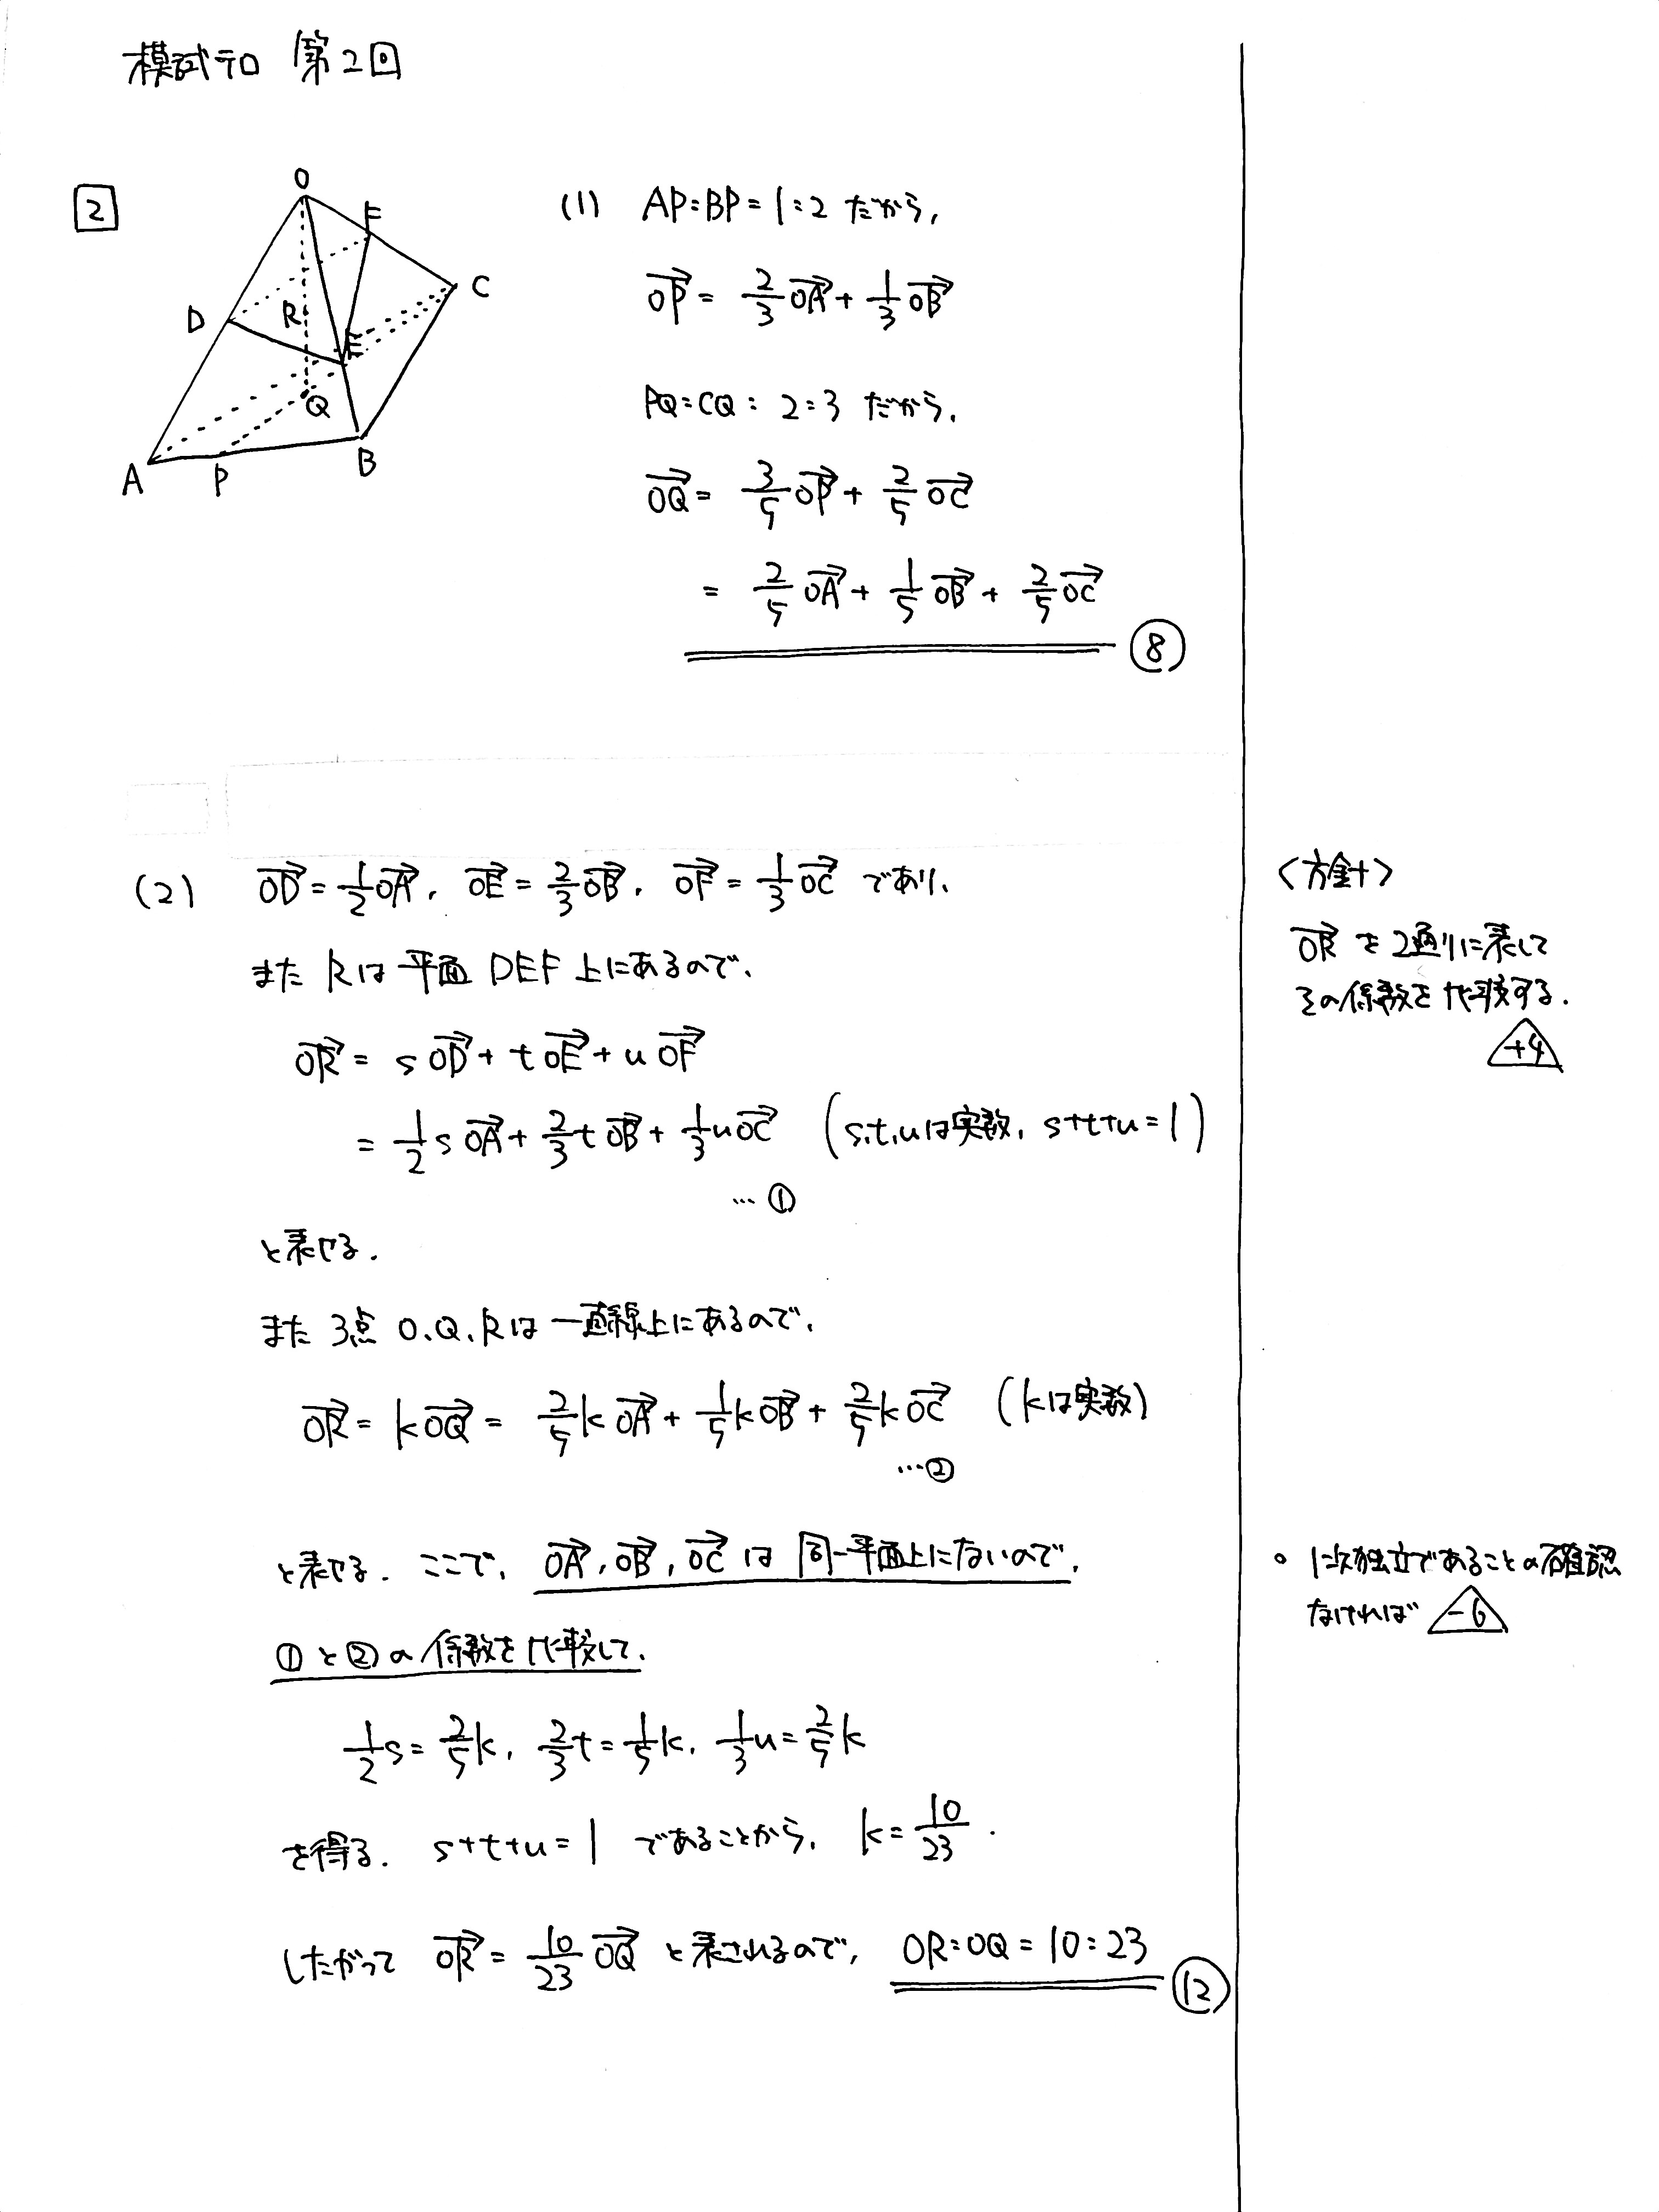 模試テロ 第2回
2
O
F
C
D
R
E
Q
A
P
B
(1) AP:BP=1:2 だから,
$\overrightarrow{OP} = \frac{2}{3}\overrightarrow{OA} + \frac{1}{3}\overrightarrow{OB}$
PQ:CQ=2:3 だから,
$\overrightarrow{OQ} = \frac{3}{5}\overrightarrow{OP} + \frac{2}{5}\overrightarrow{OC}$
$= \frac{2}{5}\overrightarrow{OA} + \frac{1}{5}\overrightarrow{OB} + \frac{2}{5}\overrightarrow{OC}$
⑧
(2) $\overrightarrow{OD} = \frac{1}{2}\overrightarrow{OA}$, $\overrightarrow{OE} = \frac{2}{3}\overrightarrow{OB}$, $\overrightarrow{OF} = \frac{1}{3}\overrightarrow{OC}$ であり,
また Rは 平面 DEF 上にあるので,
$\overrightarrow{OR} = s\overrightarrow{OD} + t\overrightarrow{OE} + u\overrightarrow{OF}$
$= \frac{1}{2}s\overrightarrow{OA} + \frac{2}{3}t\overrightarrow{OB} + \frac{1}{3}u\overrightarrow{OC}$ (s,t,uは実数, s+t+u=1)
…①
と表せる.
また 3点 O, Q, Rは 一直線上にあるので,
$\overrightarrow{OR} = k\overrightarrow{OQ} = \frac{2}{5}k\overrightarrow{OA} + \frac{1}{5}k\overrightarrow{OB} + \frac{2}{5}k\overrightarrow{OC}$ (kは実数)
…②
と表せる. ここで, $\overrightarrow{OA}, \overrightarrow{OB}, \overrightarrow{OC}$ は 同一平面上にないので,
①と②の係数を比較して,
$\frac{1}{2}s = \frac{2}{5}k$, $\frac{2}{3}t = \frac{1}{5}k$, $\frac{1}{3}u = \frac{2}{5}k$
を得る. s+t+u=1 であることから, $k = \frac{10}{23}$.
したがって $\overrightarrow{OR} = \frac{10}{23}\overrightarrow{OQ}$ と表されるので, OR:OQ=10:23
⑫
<方針>
$\overrightarrow{OR}$ を 2通りに表して
その係数を比較する.
+4
。1次独立であることの確認
なければ -6